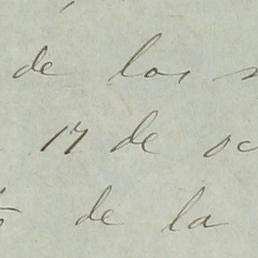 de los
17 de oc
de la